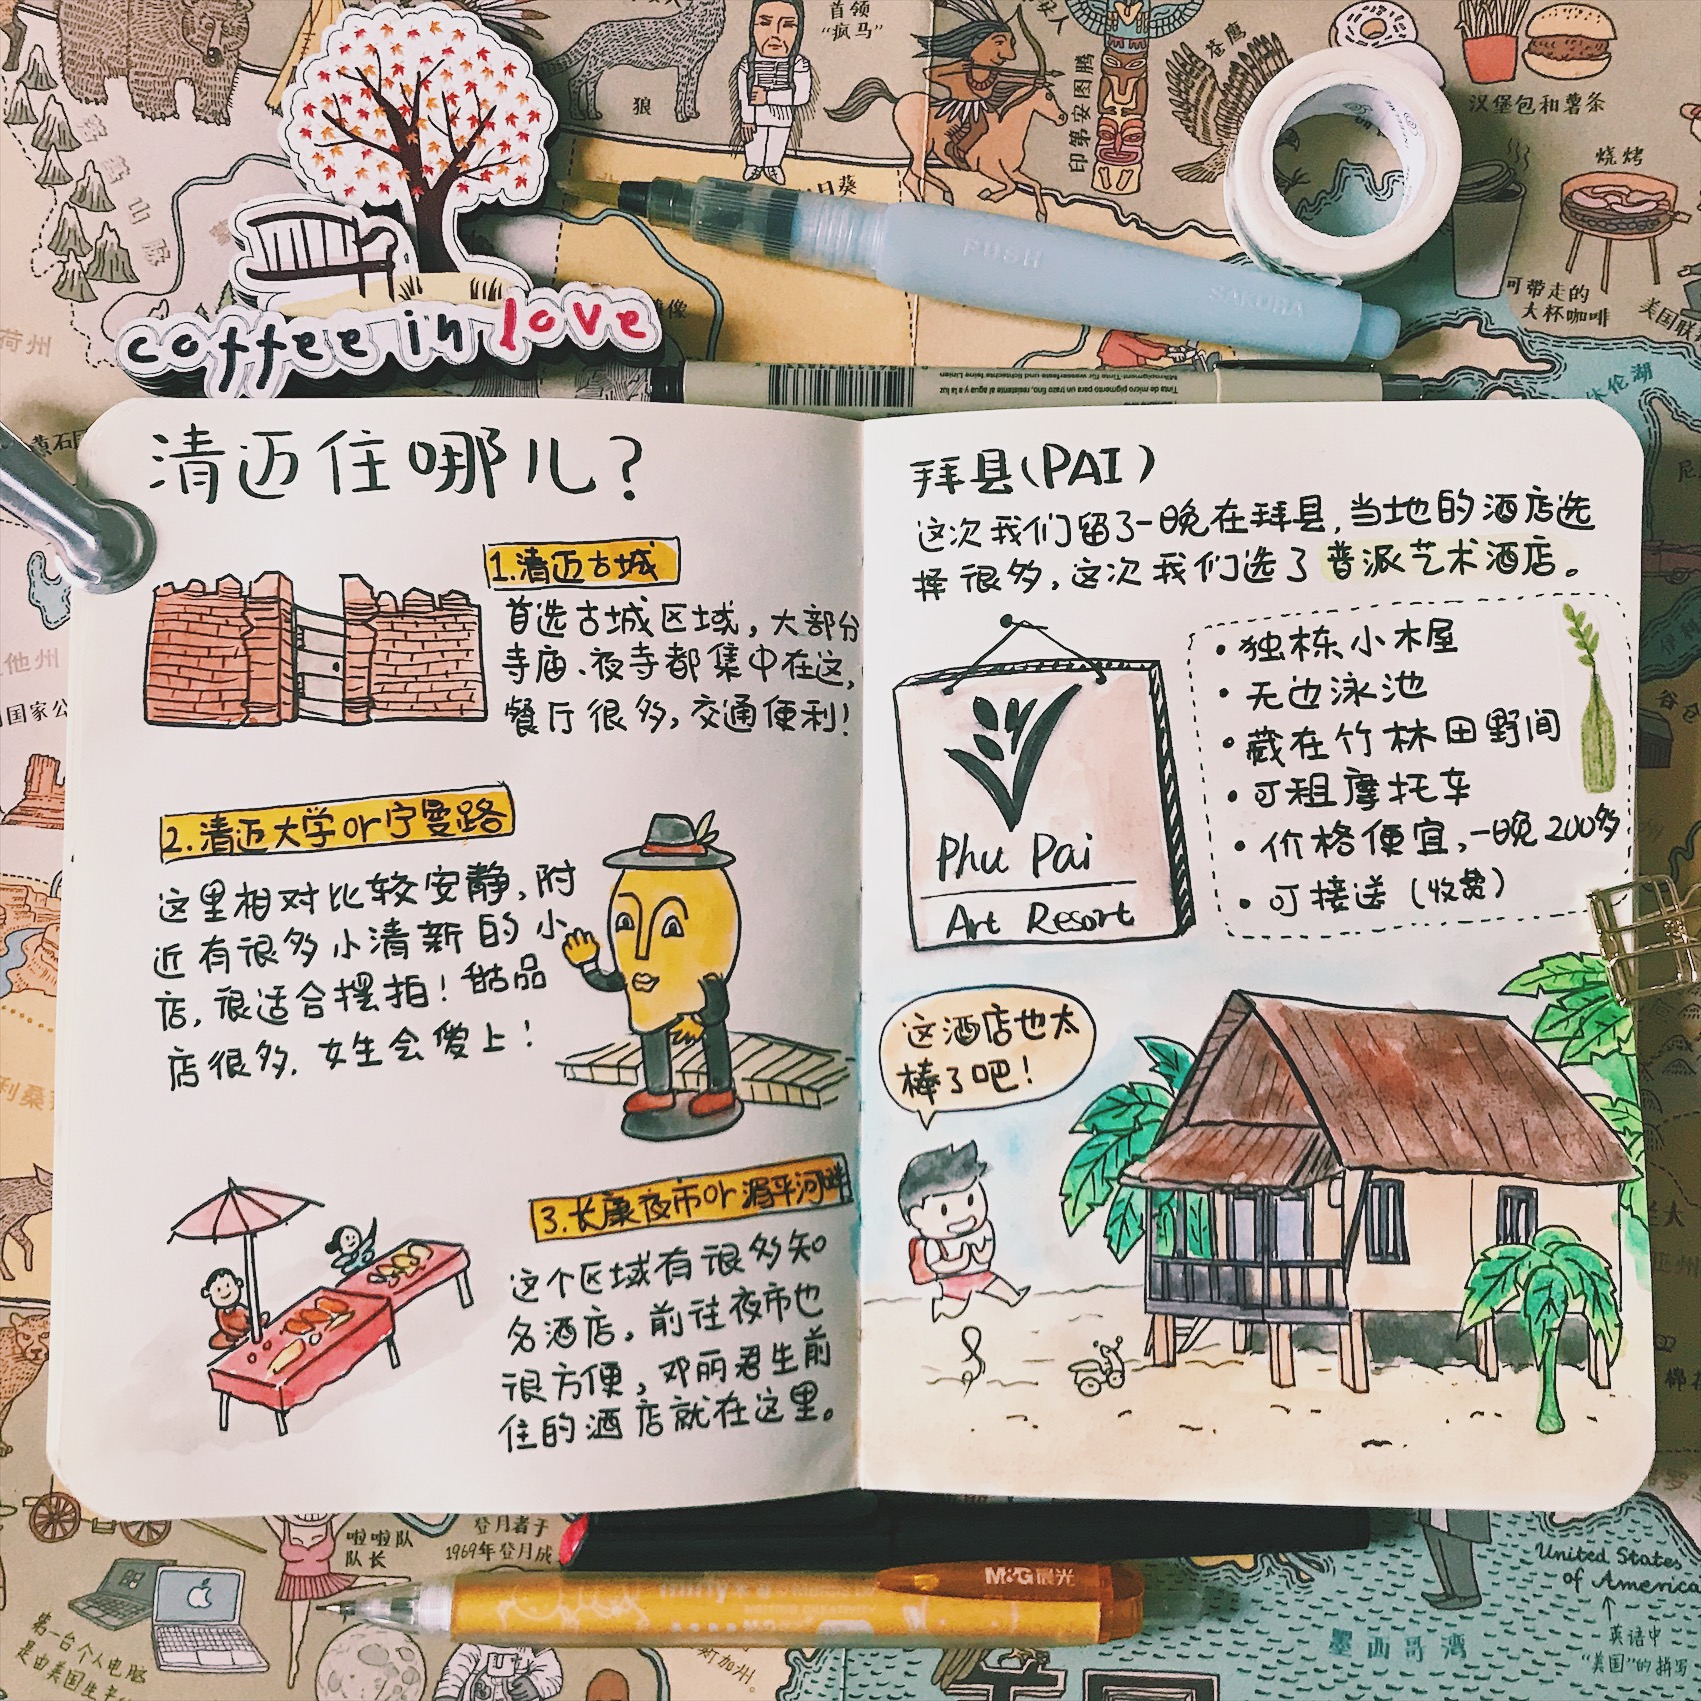 首领
"疯马"
狼
印第安图腾
苍鹰
汉堡包和薯条
烧烤
可带走的
大杯咖啡
coffee in love
PUSH
SAKURA
清迈住哪儿?
1.清迈古城
首选古城区域,大部分
寺庙、夜寺都集中在这,
餐厅很多,交通便利!
2.清迈大学or宁曼路
这里相对比较安静,附
近有很多小清新的小
店,很适合摆拍!甜品
店很多,女生会爱上!
3.长康夜市or湄平河畔
这个区域有很多知
名酒店,前往夜市也
很方便,邓丽君生前
住的酒店就在这里。
拜县(PAI)
这次我们留了一晚在拜县,当地的酒店选
择很多,这次我们选了普派艺术酒店。
Phu Pai
Art Resort
·独栋小木屋
·无边泳池
·藏在竹林田野间
·可租摩托车
·价格便宜,一晚200多
·可接送(收费)
这酒店也太
棒了吧!
啦啦队
队长
登月者于
1969年登月成
M&G晨光
第一台个人电脑
United States
of America
英语中
"美国"的拼写
墨西哥湾